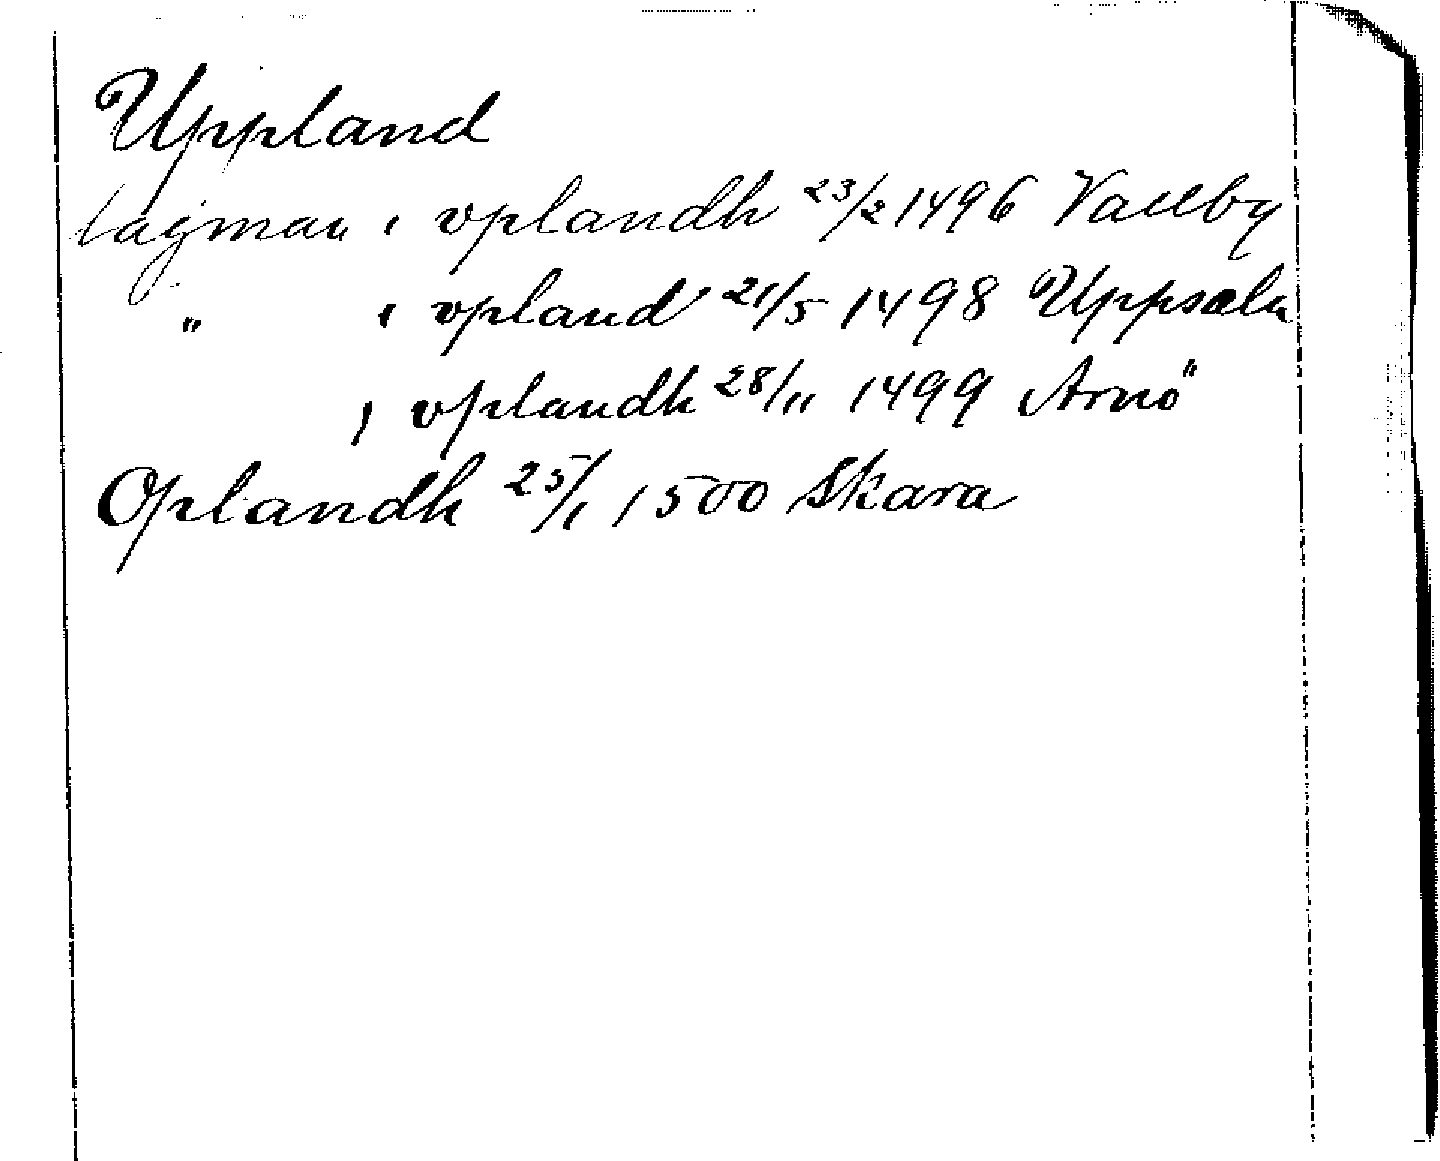 Uppland
lagman i vplandh 23/2 1496 Vallby
" i vpland 21/5 1498 Uppsala
i vplandh 28/11 1499 Arnö
Oplandh 25/1 1500 Skara